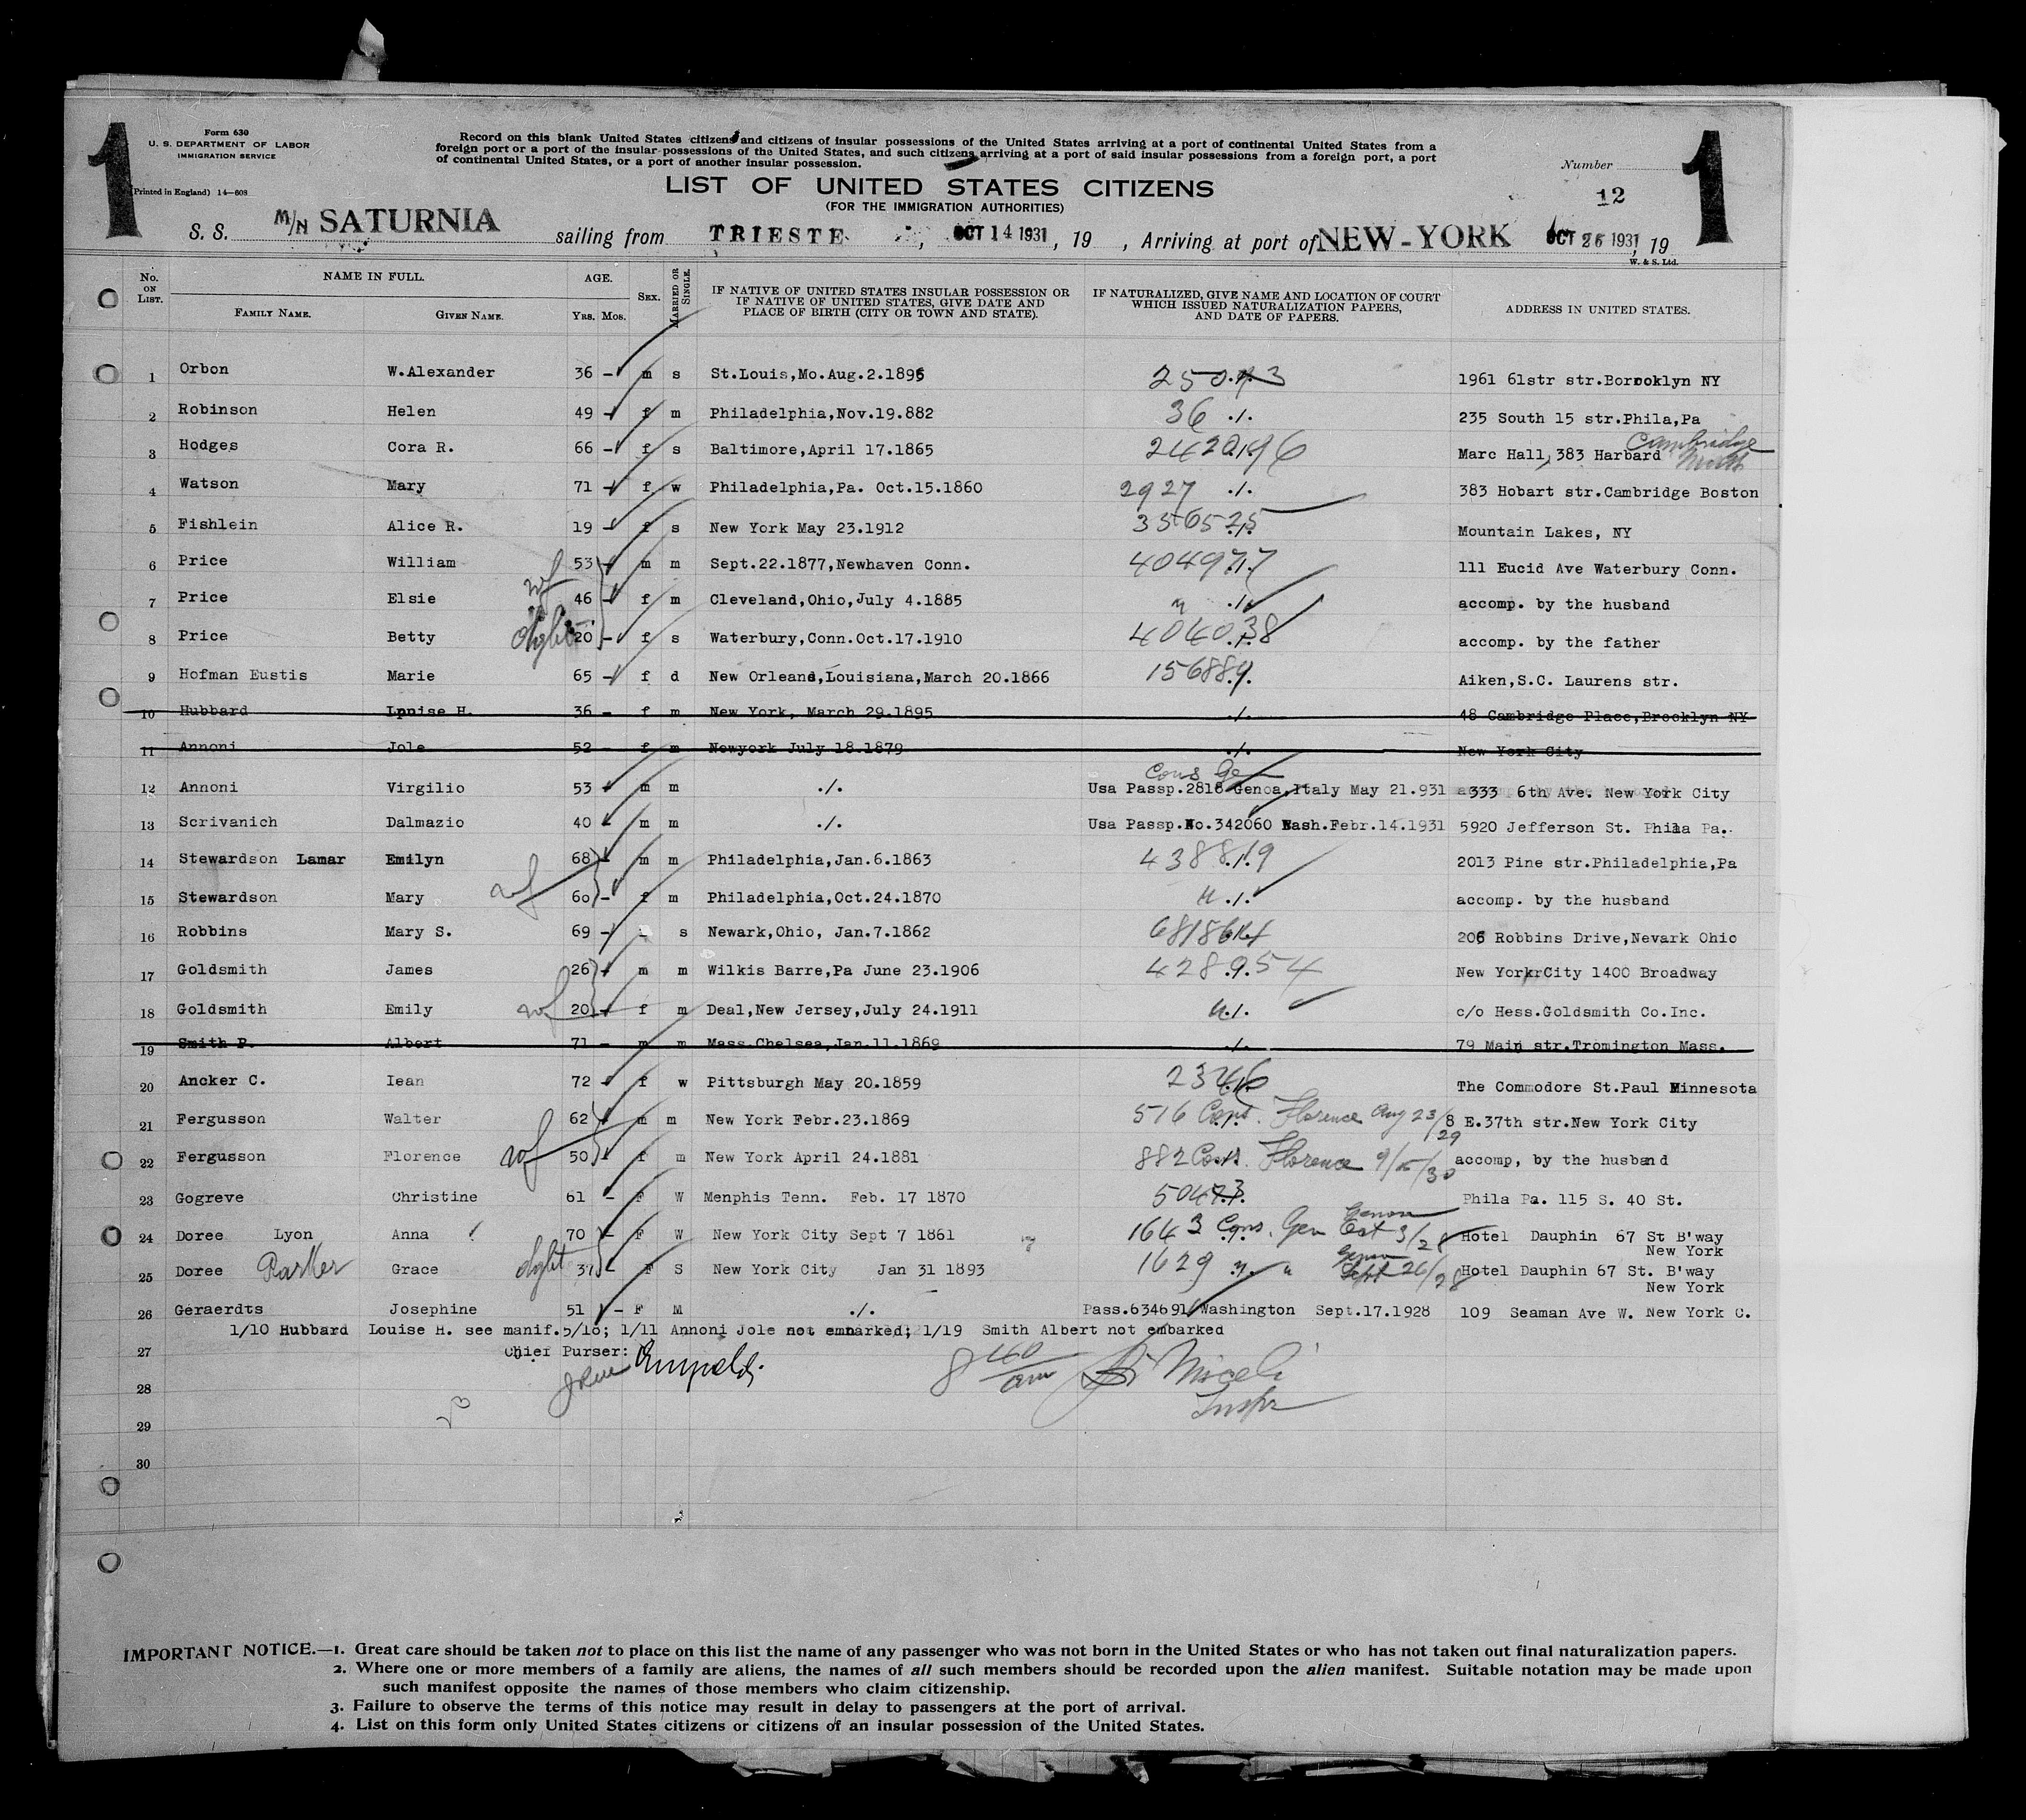 1
Form 630
U. S. DEPARTMENT OF LABOR
IMMIGRATION SERVICE
(Printed in England) 14—608
Record on this blank United States citizens and citizens of insular possessions of the United States arriving at a port of continental United States from a
foreign port or a port of the insular possessions of the United States, and such citizens arriving at a port of said insular possessions from a foreign port, a port
of continental United States, or a port of another insular possession.
Number
1
LIST OF UNITED STATES CITIZENS
(FOR THE IMMIGRATION AUTHORITIES)
12
S. S. M/N SATURNIA sailing from TRIESTE, OCT 14 1931, 19 , Arriving at port of NEW-YORK OCT 26 1931, 19
W. & S. Ltd.
No. ON LIST. NAME IN FULL. FAMILY NAME. GIVEN NAME. AGE. YRS. MOS. SEX. MARRIED OR SINGLE. IF NATIVE OF UNITED STATES INSULAR POSSESSION OR IF NATIVE OF UNITED STATES, GIVE DATE AND PLACE OF BIRTH (CITY OR TOWN AND STATE). IF NATURALIZED, GIVE NAME AND LOCATION OF COURT WHICH ISSUED NATURALIZATION PAPERS, AND DATE OF PAPERS. ADDRESS IN UNITED STATES.
1 Orbon W.Alexander 36 - m s St.Louis,Mo.Aug.2.1895 1961 61str str.Borooklyn NY
2 Robinson Helen 49 - f m Philadelphia,Nov.19.882 36 ./. 235 South 15 str.Phila,Pa
3 Hodges Cora R. 66 - f s Baltimore,April 17.1865 242096 Marc Hall, 383 Harbard Cambridge
4 Watson Mary 71 - f w Philadelphia,Pa. Oct.15.1860 2927 ./. 383 Hobart str.Cambridge Boston
5 Fishlein Alice R. 19 - f s New York May 23.1912 336525 Mountain Lakes, NY
6 Price William 53 - m m Sept.22.1877,Newhaven Conn. 404977 111 Eucid Ave Waterbury Conn.
7 Price wf Elsie 46 - f m Cleveland,Ohio,July 4.1885 " ./. accomp. by the husband
8 Price Betty dght 20 - f s Waterbury,Conn.Oct.17.1910 404038 accomp. by the father
9 Hofman Eustis Marie 65 - f d New Orleans,Louisiana,March 20.1866 156889 Aiken,S.C. Laurens str.
10 Hubbard Louise H. 36 - f m New York, March 29.1895 ./. 48 Cambridge Place,Brooklyn NY
11 Annoni Jole 52 - f m Newyork July 18.1879 ./. New York City
12 Annoni Virgilio 53 - m m ./. Cons Ge Usa Passp.2818 Genoa,Italy May 21.931 333 6th Ave. New York City
13 Scrivanich Dalmazio 40 - m m ./. Usa Passp.No.342060 Wash.Febr.14.1931 5920 Jefferson St. Phila Pa.
14 Stewardson Lamar Emilyn 68 - m m Philadelphia,Jan.6.1863 438819 2013 Pine str.Philadelphia,Pa
15 Stewardson Mary wf 60 - f m Philadelphia,Oct.24.1870 " ./. accomp. by the husband
16 Robbins Mary S. 69 - s Newark,Ohio, Jan.7.1862 206 Robbins Drive,Nevark Ohio
17 Goldsmith James 26 - m m Wilkis Barre,Pa June 23.1906 428954 New York City 1400 Broadway
18 Goldsmith Emily wf 20 - f m Deal,New Jersey,July 24.1911 " ./. c/o Hess.Goldsmith Co.Inc.
19 Smith P. Albert 71 - m m Mass.Chelsea,Jan.11.1869 ./. 79 Main str.Tromington Mass.
20 Ancker C. Iean 72 - f w Pittsburgh May 20.1859 2346 The Commodore St.Paul Minnesota
21 Fergusson Walter 62 - m m New York Febr.23.1869 516 Cons. Florence Aug 23/29 8 E.37th str.New York City
22 Fergusson Florence wf 50 - f m New York April 24.1881 882 Cons. Florence 9/15/30 accomp, by the husband
23 Gogreve Christine 61 - F W Menphis Tenn. Feb. 17 1870 50473 Phila Pa. 115 S. 40 St.
24 Doree Lyon Anna 70 - F W New York City Sept 7 1861 1643 Cons. Gen Genoa Oct 3/28 Hotel Dauphin 67 St B'way
New York
25 Doree Parker Grace dght 37 - F S New York City Jan 31 1893 1629 " " Genoa Sept 26/28 Hotel Dauphin 67 St. B'way
New York
26 Geraerdts Josephine 51 - F M ./. Pass.634691 Washington Sept.17.1928 109 Seaman Ave W. New York C.
1/10 Hubbard Louise H. see manif.5/16; 1/11 Annoni Jole not embarked; 1/19 Smith Albert not embarked
27 Chief Purser:
8 40/am Miceli
Inspr
28
29
30
IMPORTANT NOTICE.—1. Great care should be taken not to place on this list the name of any passenger who was not born in the United States or who has not taken out final naturalization papers.
2. Where one or more members of a family are aliens, the names of all such members should be recorded upon the alien manifest. Suitable notation may be made upon
such manifest opposite the names of those members who claim citizenship.
3. Failure to observe the terms of this notice may result in delay to passengers at the port of arrival.
4. List on this form only United States citizens or citizens of an insular possession of the United States.